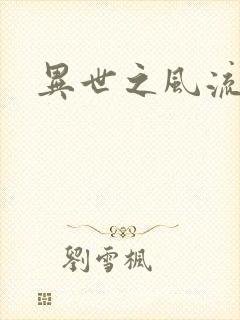 異世之風流
劉雪楓